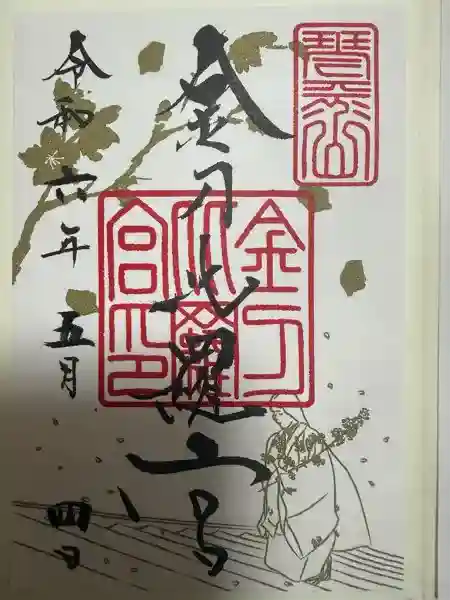 琴平山
金刀比羅宮
金刀
比羅
宮印
令和六年五月四日